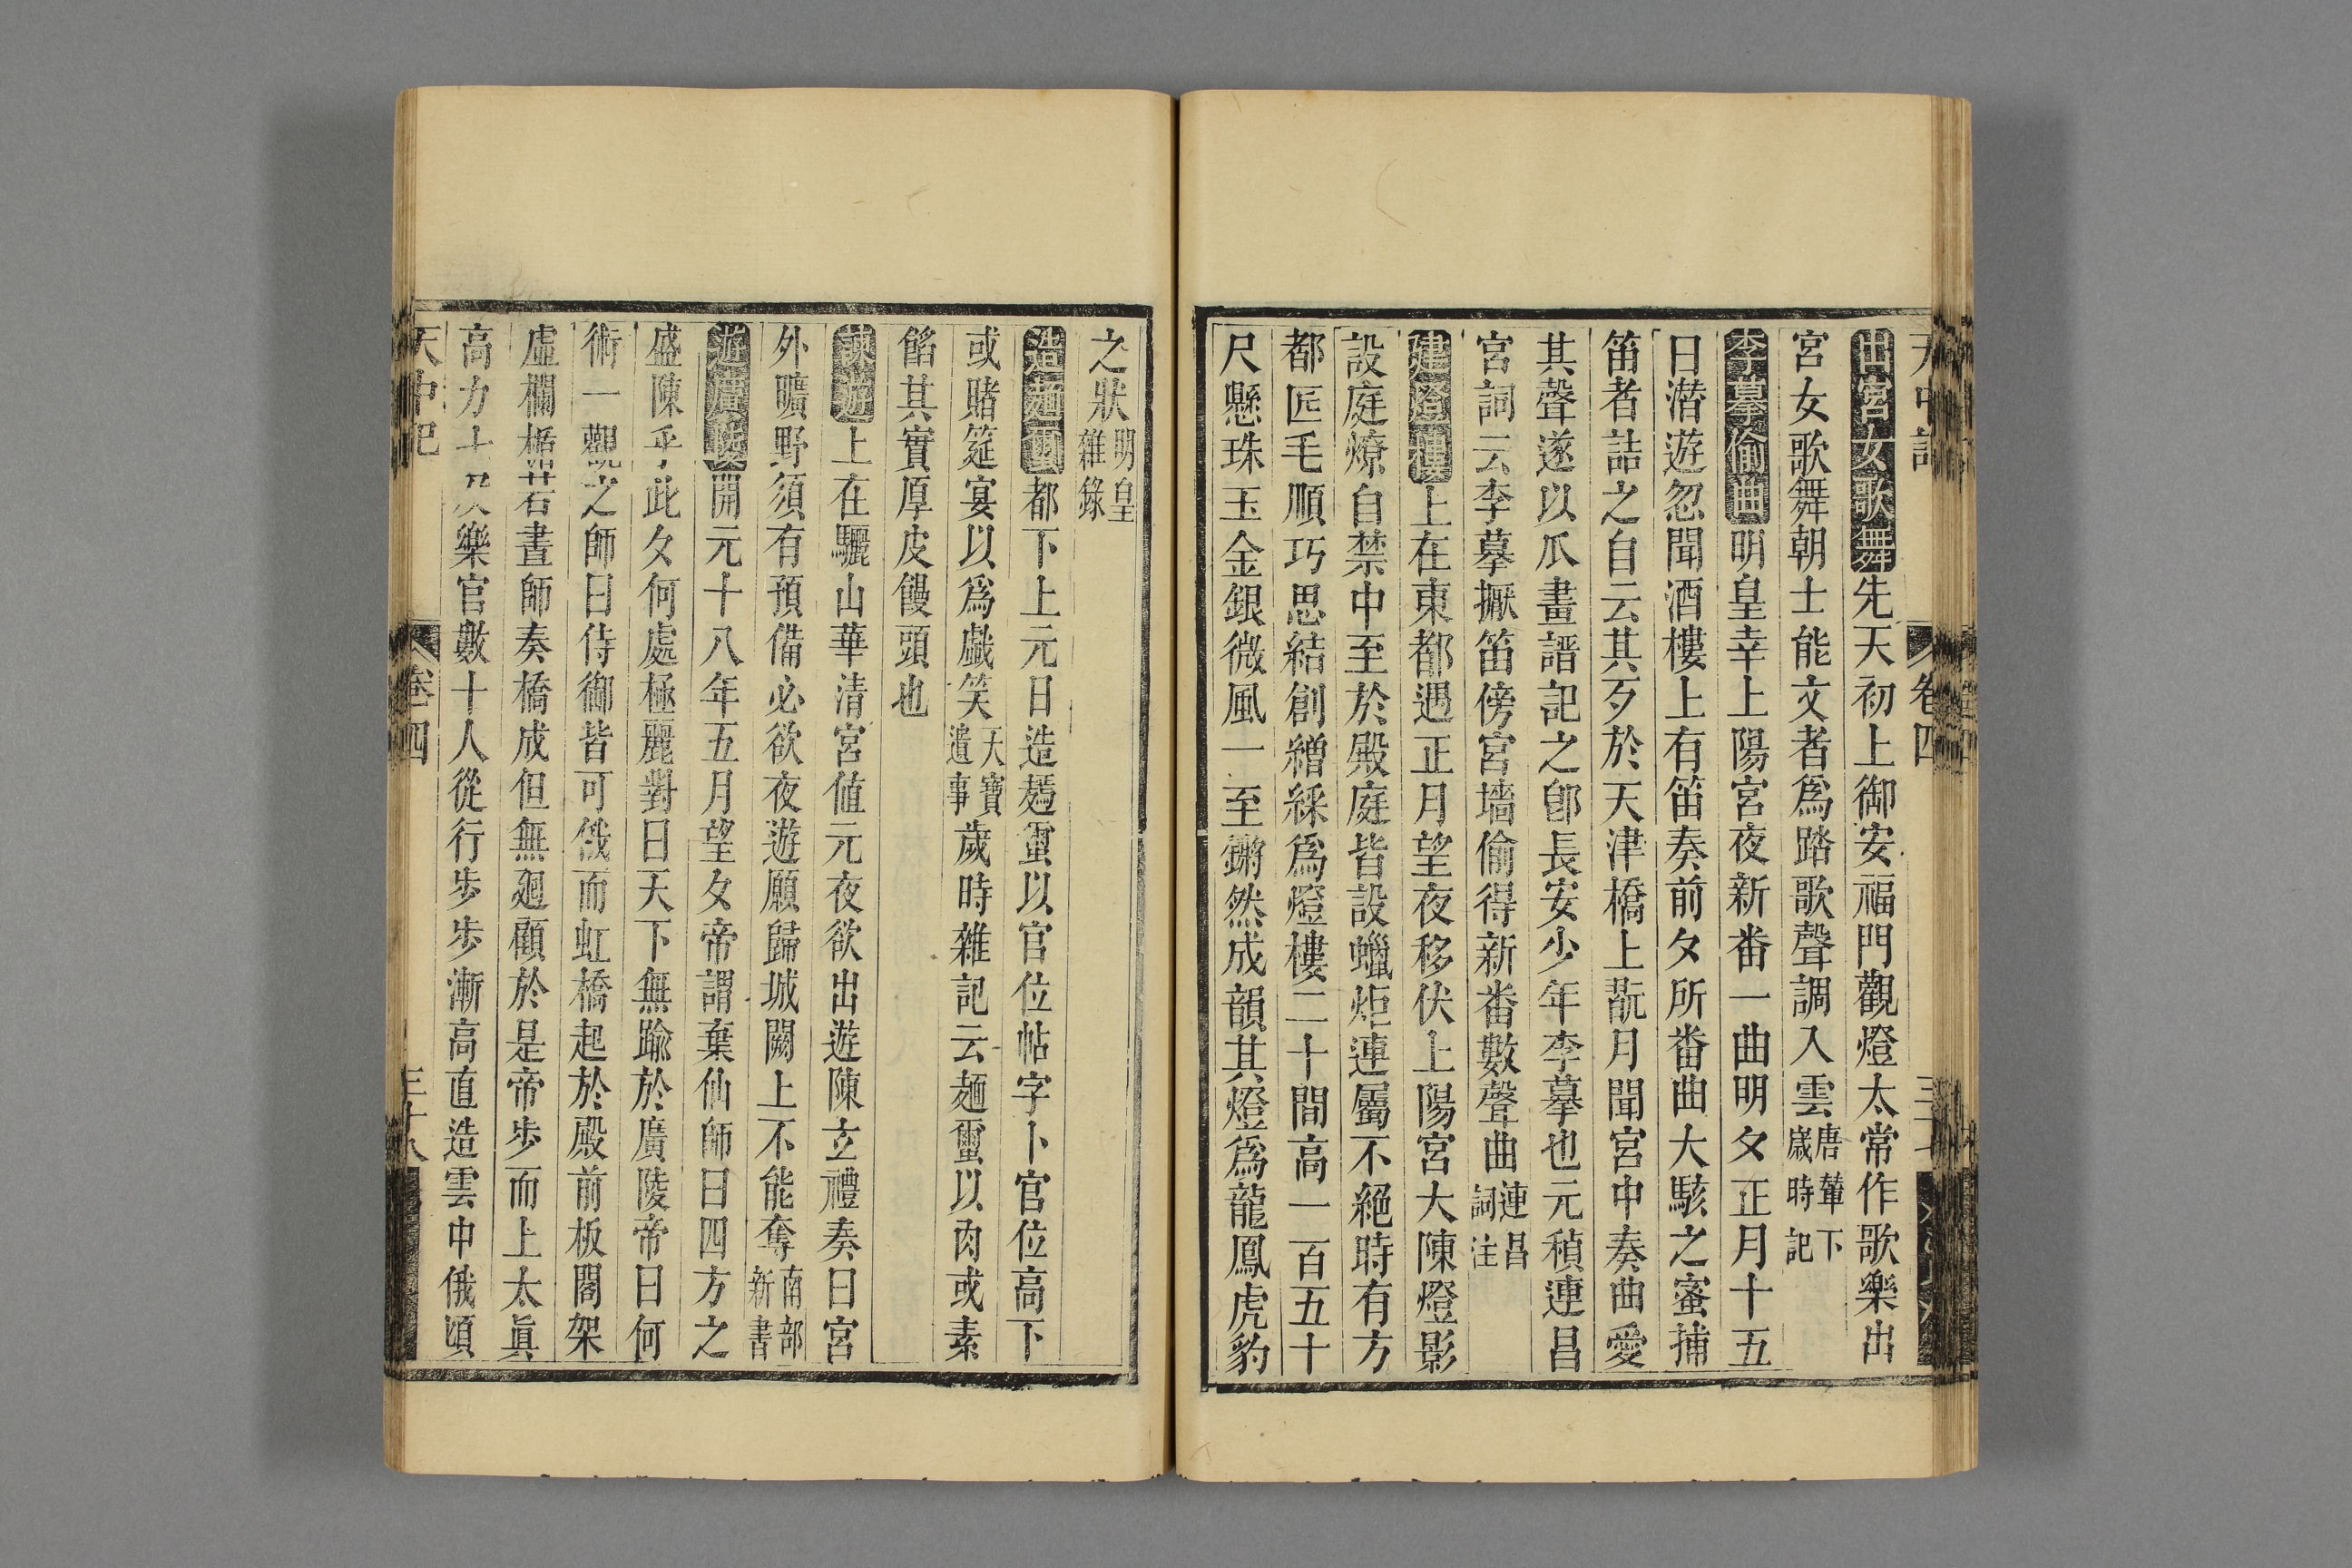 天中記 卷四 三十七
出宮女歌舞先天初上御安福門觀燈太常作歌樂出
宮女歌舞朝士能文者爲踏歌聲調入雲唐輦下歲時記
李摹偷曲明皇幸上陽宮夜新番一曲明夕正月十五
日潜遊忽聞酒樓上有笛奏前夕所番曲大駭之蜜捕
笛者詰之自云其歹於天津橋上翫月聞宮中奏曲愛
其聲遂以爪畫譜記之卽長安少年李摹也元稹連昌
宮詞云李摹擫笛傍宮墻偷得新番數聲曲連昌詞注
建燈樓上在東都遇正月望夜移伏上陽宮大陳燈影
設庭燎自禁中至於殿庭皆設蠟炬連屬不絕時有方
都匠毛順巧思結創繒綵爲燈樓二十間高一百五十
尺懸珠玉金銀微風一至鏘然成韻其燈爲龍鳳虎豹
之狀明皇雜錄
造麵䘉都下上元日造麵䘉以官位帖字卜官位高下
或賭筵宴以爲戱笑天寶遺事歲時雜記云麵䘉以肉或素
餡其實厚皮饅頭也
諫遊上在驪山華清宮値元夜欲出遊陳玄禮奏曰宮
外曠野須有預備必欲夜遊願歸城闕上不能奪南部新書
遊廣陵開元十八年五月望夕帝謂葉仙師曰四方之
盛陳乎此夕何處極麗對曰天下無踰於廣陵帝曰何
術一觀之師曰侍御皆可俄而虹橋起於殿前板閣架
虛欄楯若畫師奏橋成但無廻顧於是帝步而上太眞
高力士及樂官數十人從行步步漸高直造雲中俄頃
天中記 卷四 三十八